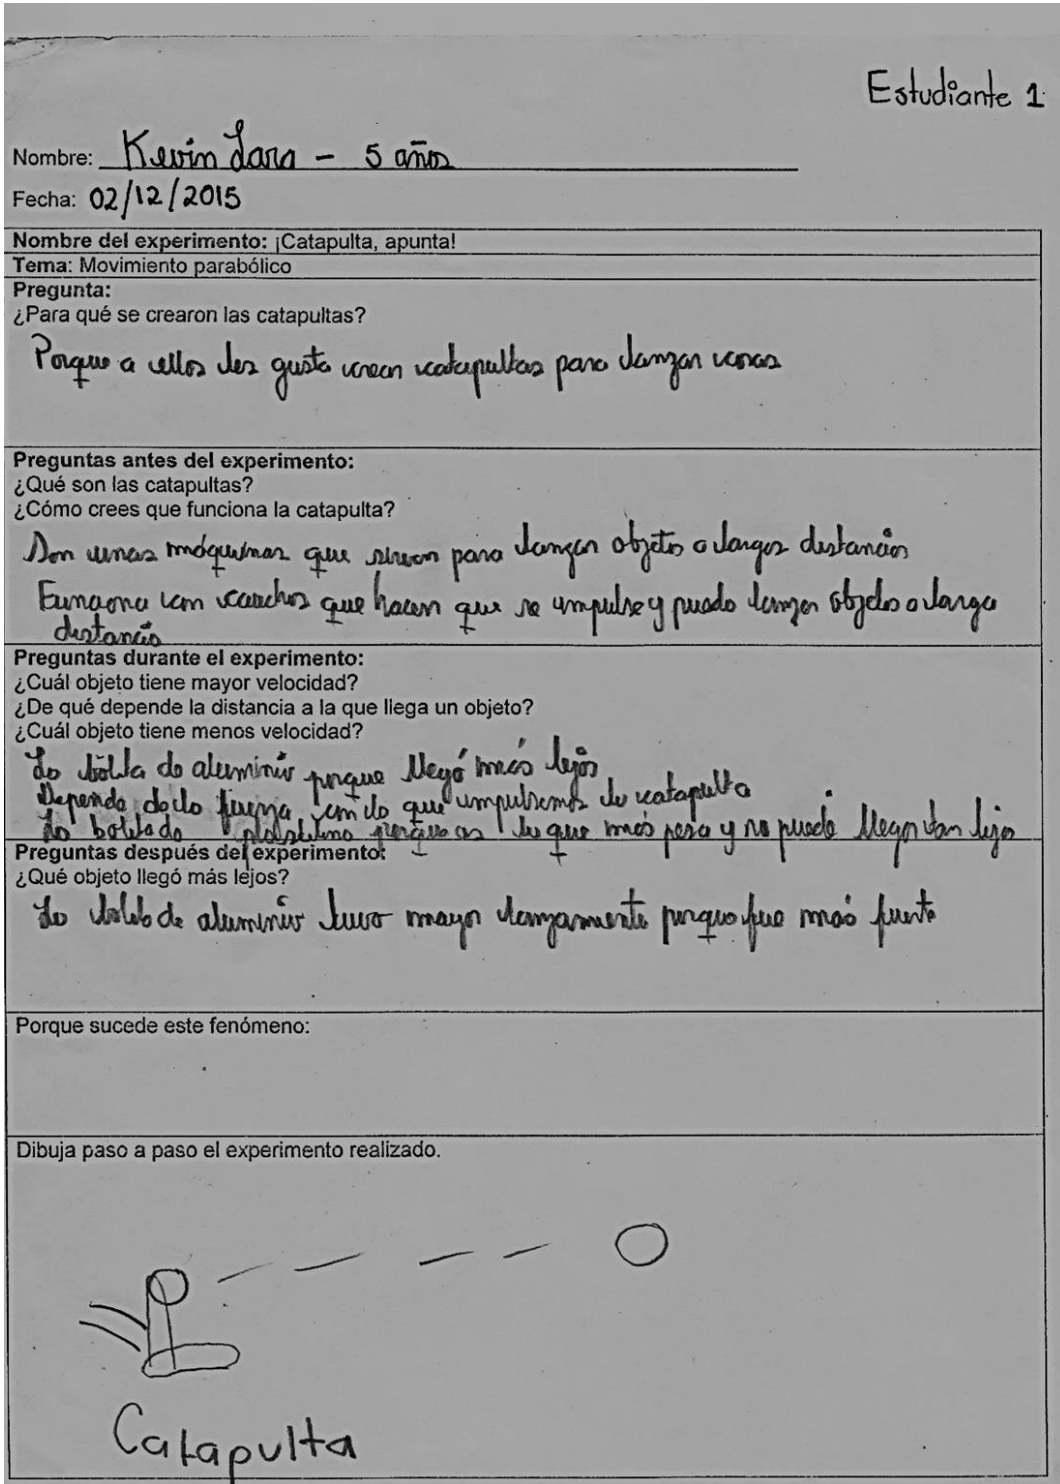 Estudiante 1
Nombre: Kevin Lara - 5 años
Fecha: 02/12/2015
Nombre del experimento: ¡Catapulta, apunta!
Tema: Movimiento parabólico
Pregunta:
¿Para qué se crearon las catapultas?
Porque a ellos les gusta crear catapultas para lanzar cosas
Preguntas antes del experimento:
¿Qué son las catapultas?
¿Cómo crees que funciona la catapulta?
Son unas máquinas que sirven para lanzar objetos a largas distancias
Funciona con cauchos que hacen que se impulse y pueda lanzar objetos a larga
distancia
Preguntas durante el experimento:
¿Cuál objeto tiene mayor velocidad?
¿De qué depende la distancia a la que llega un objeto?
¿Cuál objeto tiene menos velocidad?
La bolita de aluminio porque llegó más lejos
Depende de la fuerza con la que impulsemos la catapulta
La bolita de plastilina porque es la que más pesa y no puede llegar tan lejos
Preguntas después del experimento:
¿Qué objeto llegó más lejos?
La bolita de aluminio tuvo mayor lanzamiento porque fue más fuerte
Porque sucede este fenómeno:
Dibuja paso a paso el experimento realizado.
Catapulta